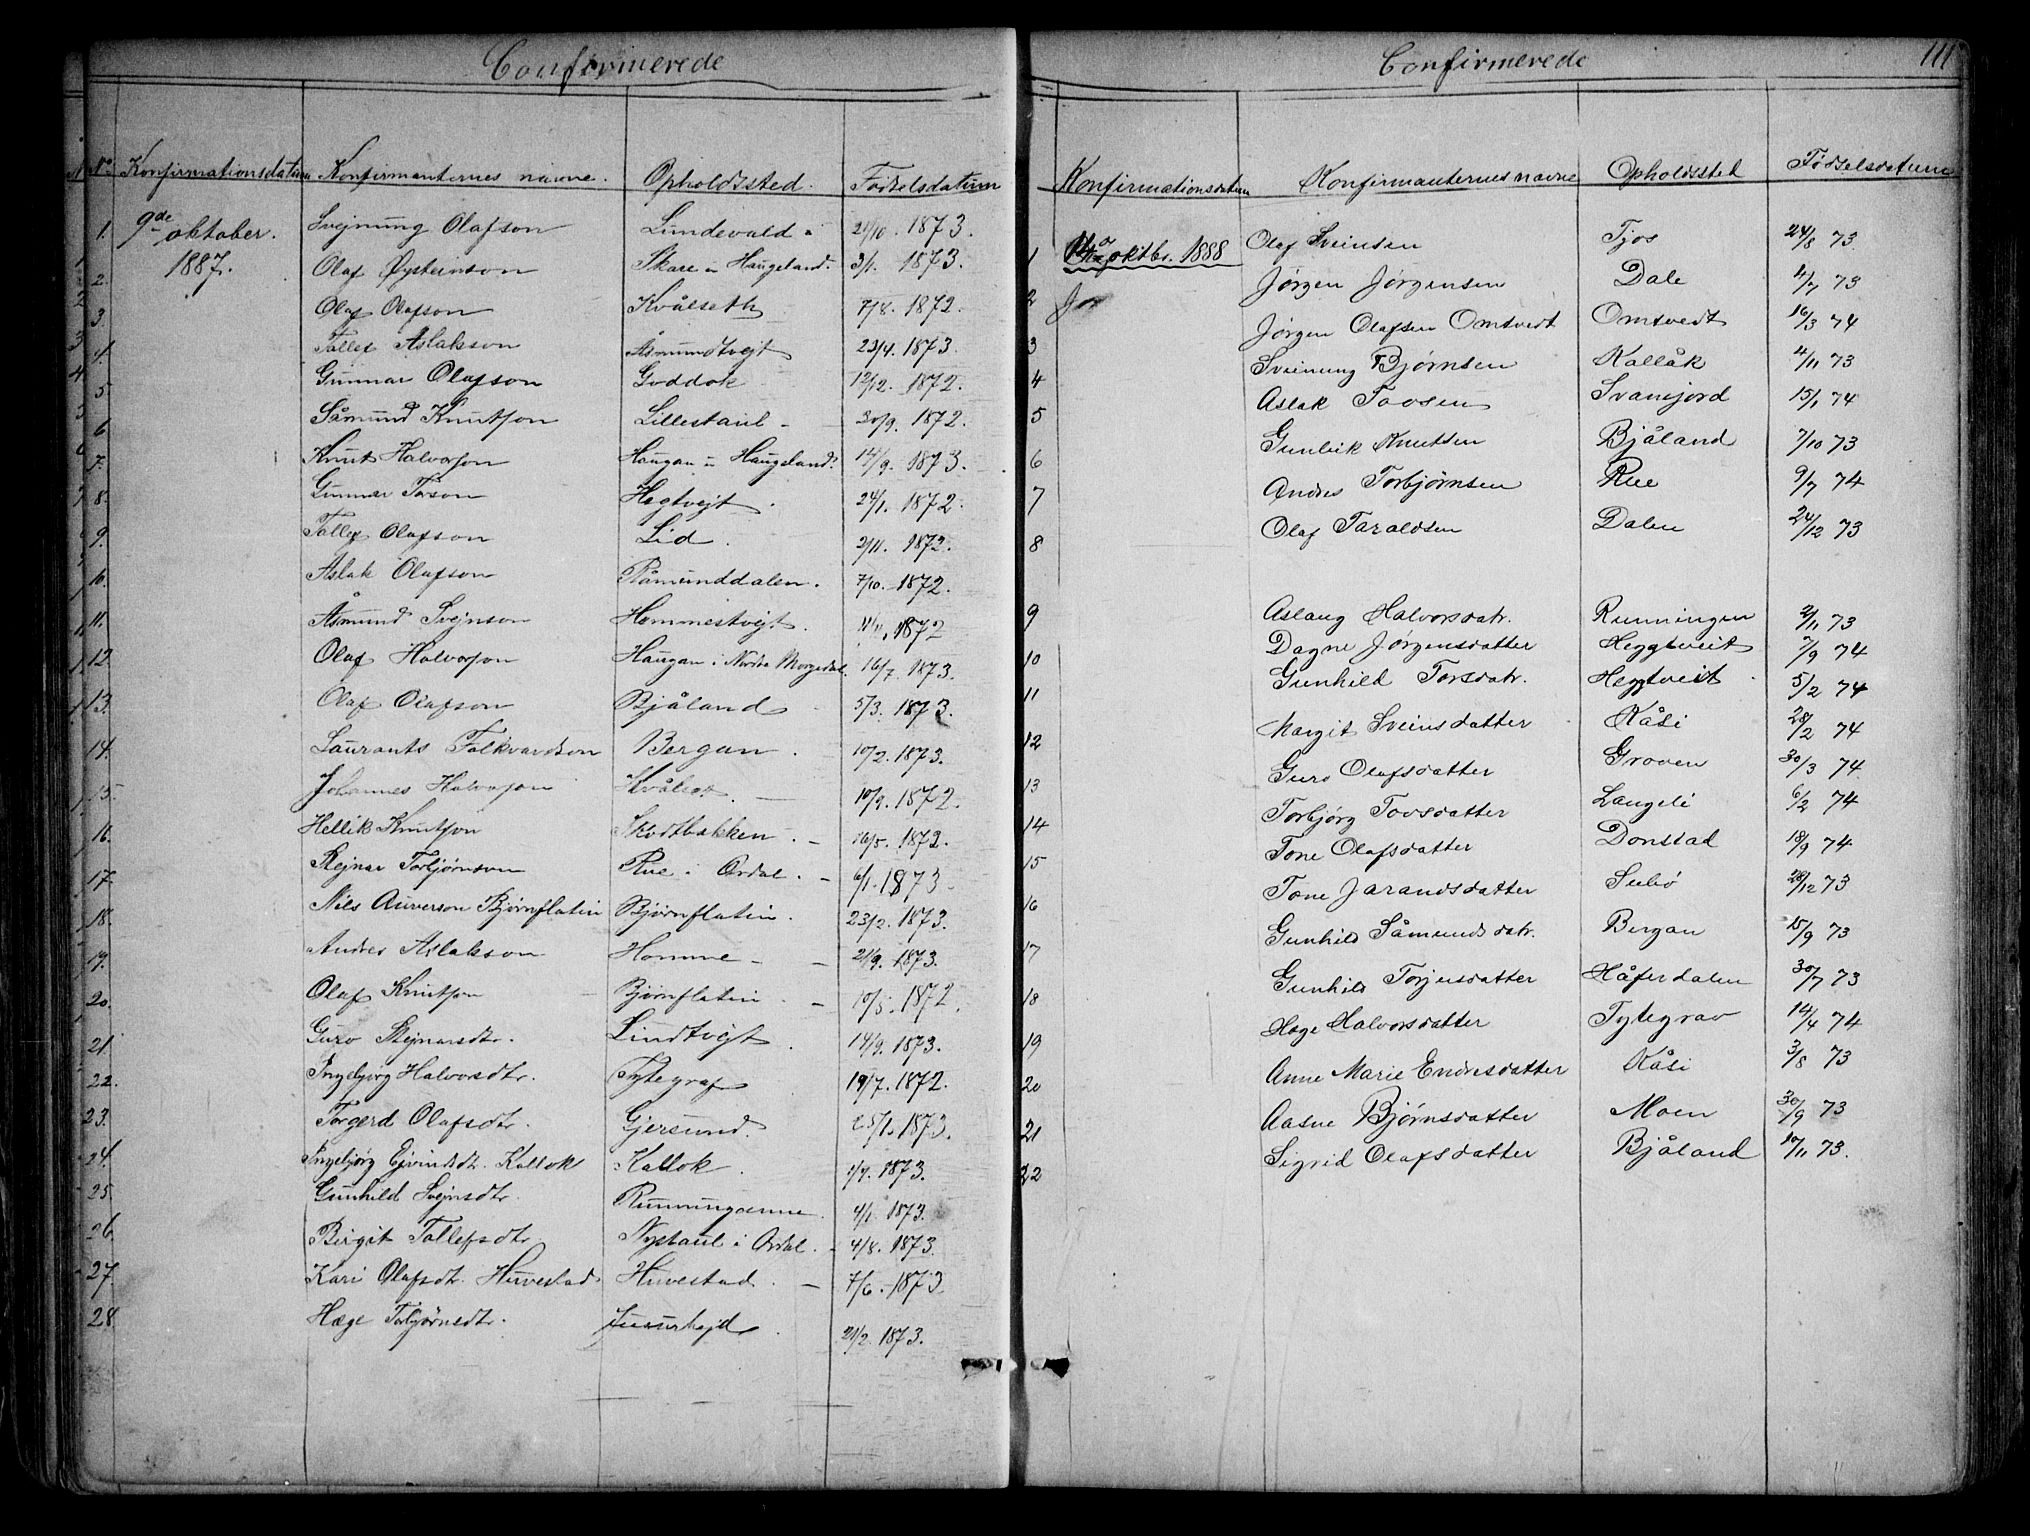 Confirmerede
No. Konfirmationsdatum Konfirmanternes navne. Opholdssted. Fødselsdatum
1. 9de oktober. Svejnung Olafson Lundevald 21/10. 1873.
1887.
2. Olaf Øysteinson Skare i Haugeland. 3/1. 1873.
3. Olaf Olafson Kvålseth 7/8. 1872.
4. Tallef Aslakson Åsmundtvejt 23/4. 1873.
5 Gunnar Olafson Goddok 12/12. 1872.
6 Såmund Knutson Lillestaul 30/9. 1872.
7. Knut Halvorson Haugan i Haugeland. 14/9. 1873.
8. Gunnar Torson Hegtvejt. 24/1. 1872.
9. Tallef Olafson Lid. 2/11. 1872.
10. Aslak Olafson Råmunddalen. 7/10. 1872.
11. Åsmund Svejnson Hommestvejt. 11/11. 1872
12. Olaf Halvorson Haugan i Nordre Morgedal. 16/7. 1873.
13. Olaf Olafson Bjåland 5/3. 1873.
14. Laurants Folkvardson Bergan. 10/2. 1873.
15. Johannes Halvorson Kvålset. 10/9. 1872.
16. Hellik Knutson Skodtbakken. 16/5. 1872.
17. Stejnar Torbjørnson Rue i Ordal. 6/1. 1873.
18. Nils Auverson Bjørnflatin Bjørnflatin. 23/2. 1873.
19. Andres Aslakson Homme 21/9. 1873.
20. Olaf Knutson Bjørnflatin. 10/5. 1872.
21. Guro Stejnarsdtr. Lindtvejt. 14/9. 1873.
22. Ingebjørg Halvorsdtr. Tytegraf 19/7. 1872.
23. Torgerd Olafsdtr. Gjersund. 25/1. 1873.
24. Ingebjørg Ejvindsdt. Kallok Kallok. 1/7. 1873.
25 Gunhild Svejnsdtr. Runningenne. 4/1. 1873.
26. Birgit Tallefsdtr. Nystaul i Ordal. 4/8. 1873.
27. Kari Olafsdt. Huvestad Huvestad. 7/6. 1873.
28. Hæge Torbjørnsdtr. 21/2. 1873.
Confirmerede 111
Konfirmationsdatum Konfirmanternes navne Opholdssted Fødselsdatum
1 14de oktbr. 1888 Olaf Sveinsen Tjos 24/8 73
2 Jør Jørgen Jørgensen Dale 4/7 73
3 Jørgen Olafsen Omtvedt Omtvedt 16/3 74
4 Sveinung Bjørnsen Kallåk 4/11 73
5 Aslak Tovsen Svanejord 15/1 74
6 Gunleik Knutsen Bjåland 7/10 73
7 Andres Torbjørnsen Rue 9/7 74
8 Olaf Taraldsen Dalen 24/12 73
9 Aslaug Halvorsdatr. Runningen 2/11 73
10 Dagne Jørgensdatter Heggtveit 7/9 74
11 Gunhild Torsdatr. Heggtveit 5/2 74
12 Margit Sveinsdatter Kåsi 28/2 74
13 Guro Olafsdatter Groven 30/3 74
14 Torbjørg Tovsdatter Langeli 6/2 74
15 Tone Olafsdatter Donstad 18/9 74
16 Tone Jarandsdatter Subø 28/12 73
17 Gunhild Såmundsdatr. Bergan 15/9 73
18 Gunhild Torjusdatter Håferdalen 30/7 73
19 Hæge Halvorsdatter Tytegrav 14/4 74
20 Anne Marie Endresdatter Kåsi 3/8 73
21 Aasne Bjørnsdatter Moen 30/9 73
22 Sigrid Olafsdatter Bjåland 10/11 73.